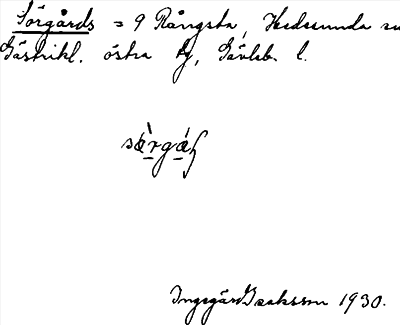 Sörgårds = 9 Rångsta, Hedesunda sn
Gästrikl. östra tg, Gävleb. l.
Ingegärd Isaksson 1930.